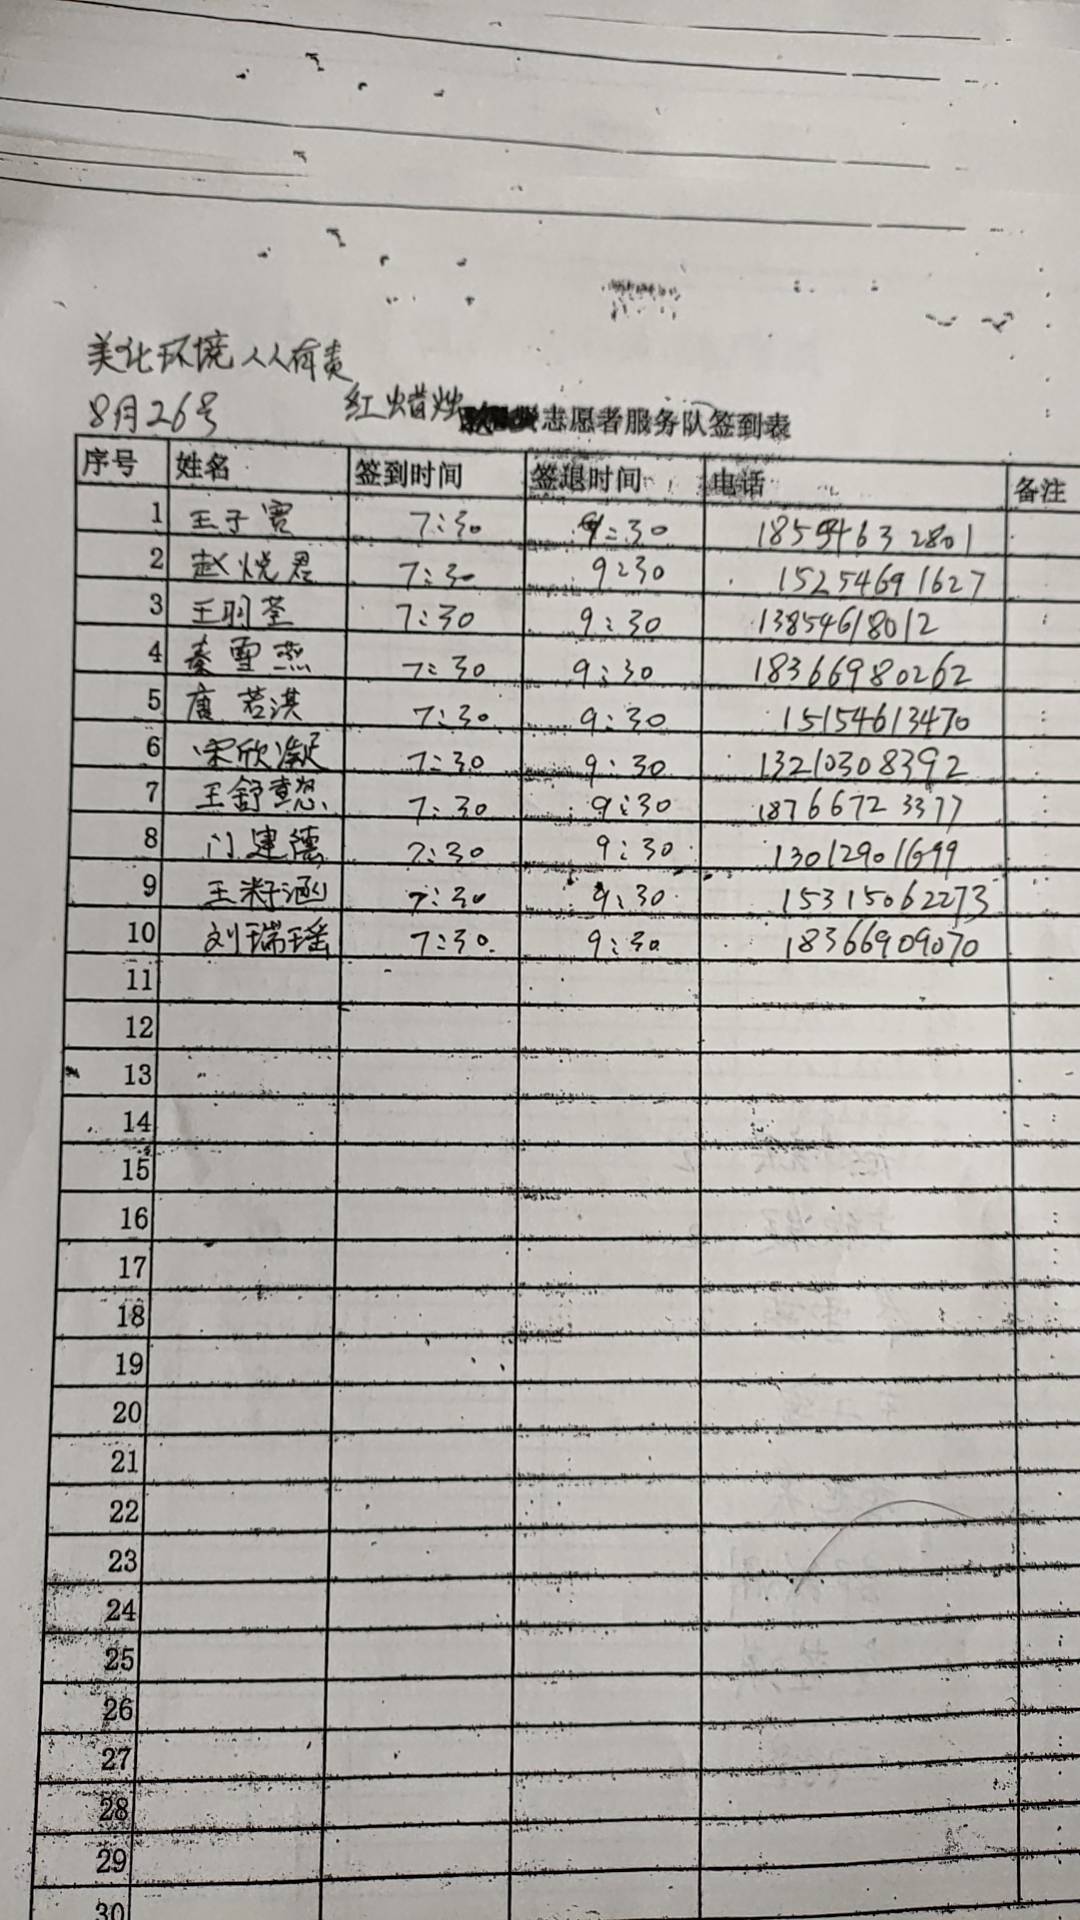 美化环境人人有责
8月26号 红蜡烛志愿者服务队签到表
序号 姓名 签到时间 签退时间 电话 备注
1 王子 7:30 9:30 18594632801
2 赵悦君 7:30 9:30 15254691627
3 王羽荃 7:30 9:30 13854618012
4 秦雪杰 7:30 9:30 18366980262
5 唐若淇 7:30 9:30 15154613470
6 宋欣凝 7:30 9:30 13210308392
7 王舒懿 7:30 9:30 18766723377
8 门建德 7:30 9:30 13012901699
9 王籽涵 7:30 9:30 15315062273
10 刘瑞瑶 7:30 9:30 18366909070
11
12
13
14
15
16
17
18
19
20
21
22
23
24
25
26
27
28
29
30